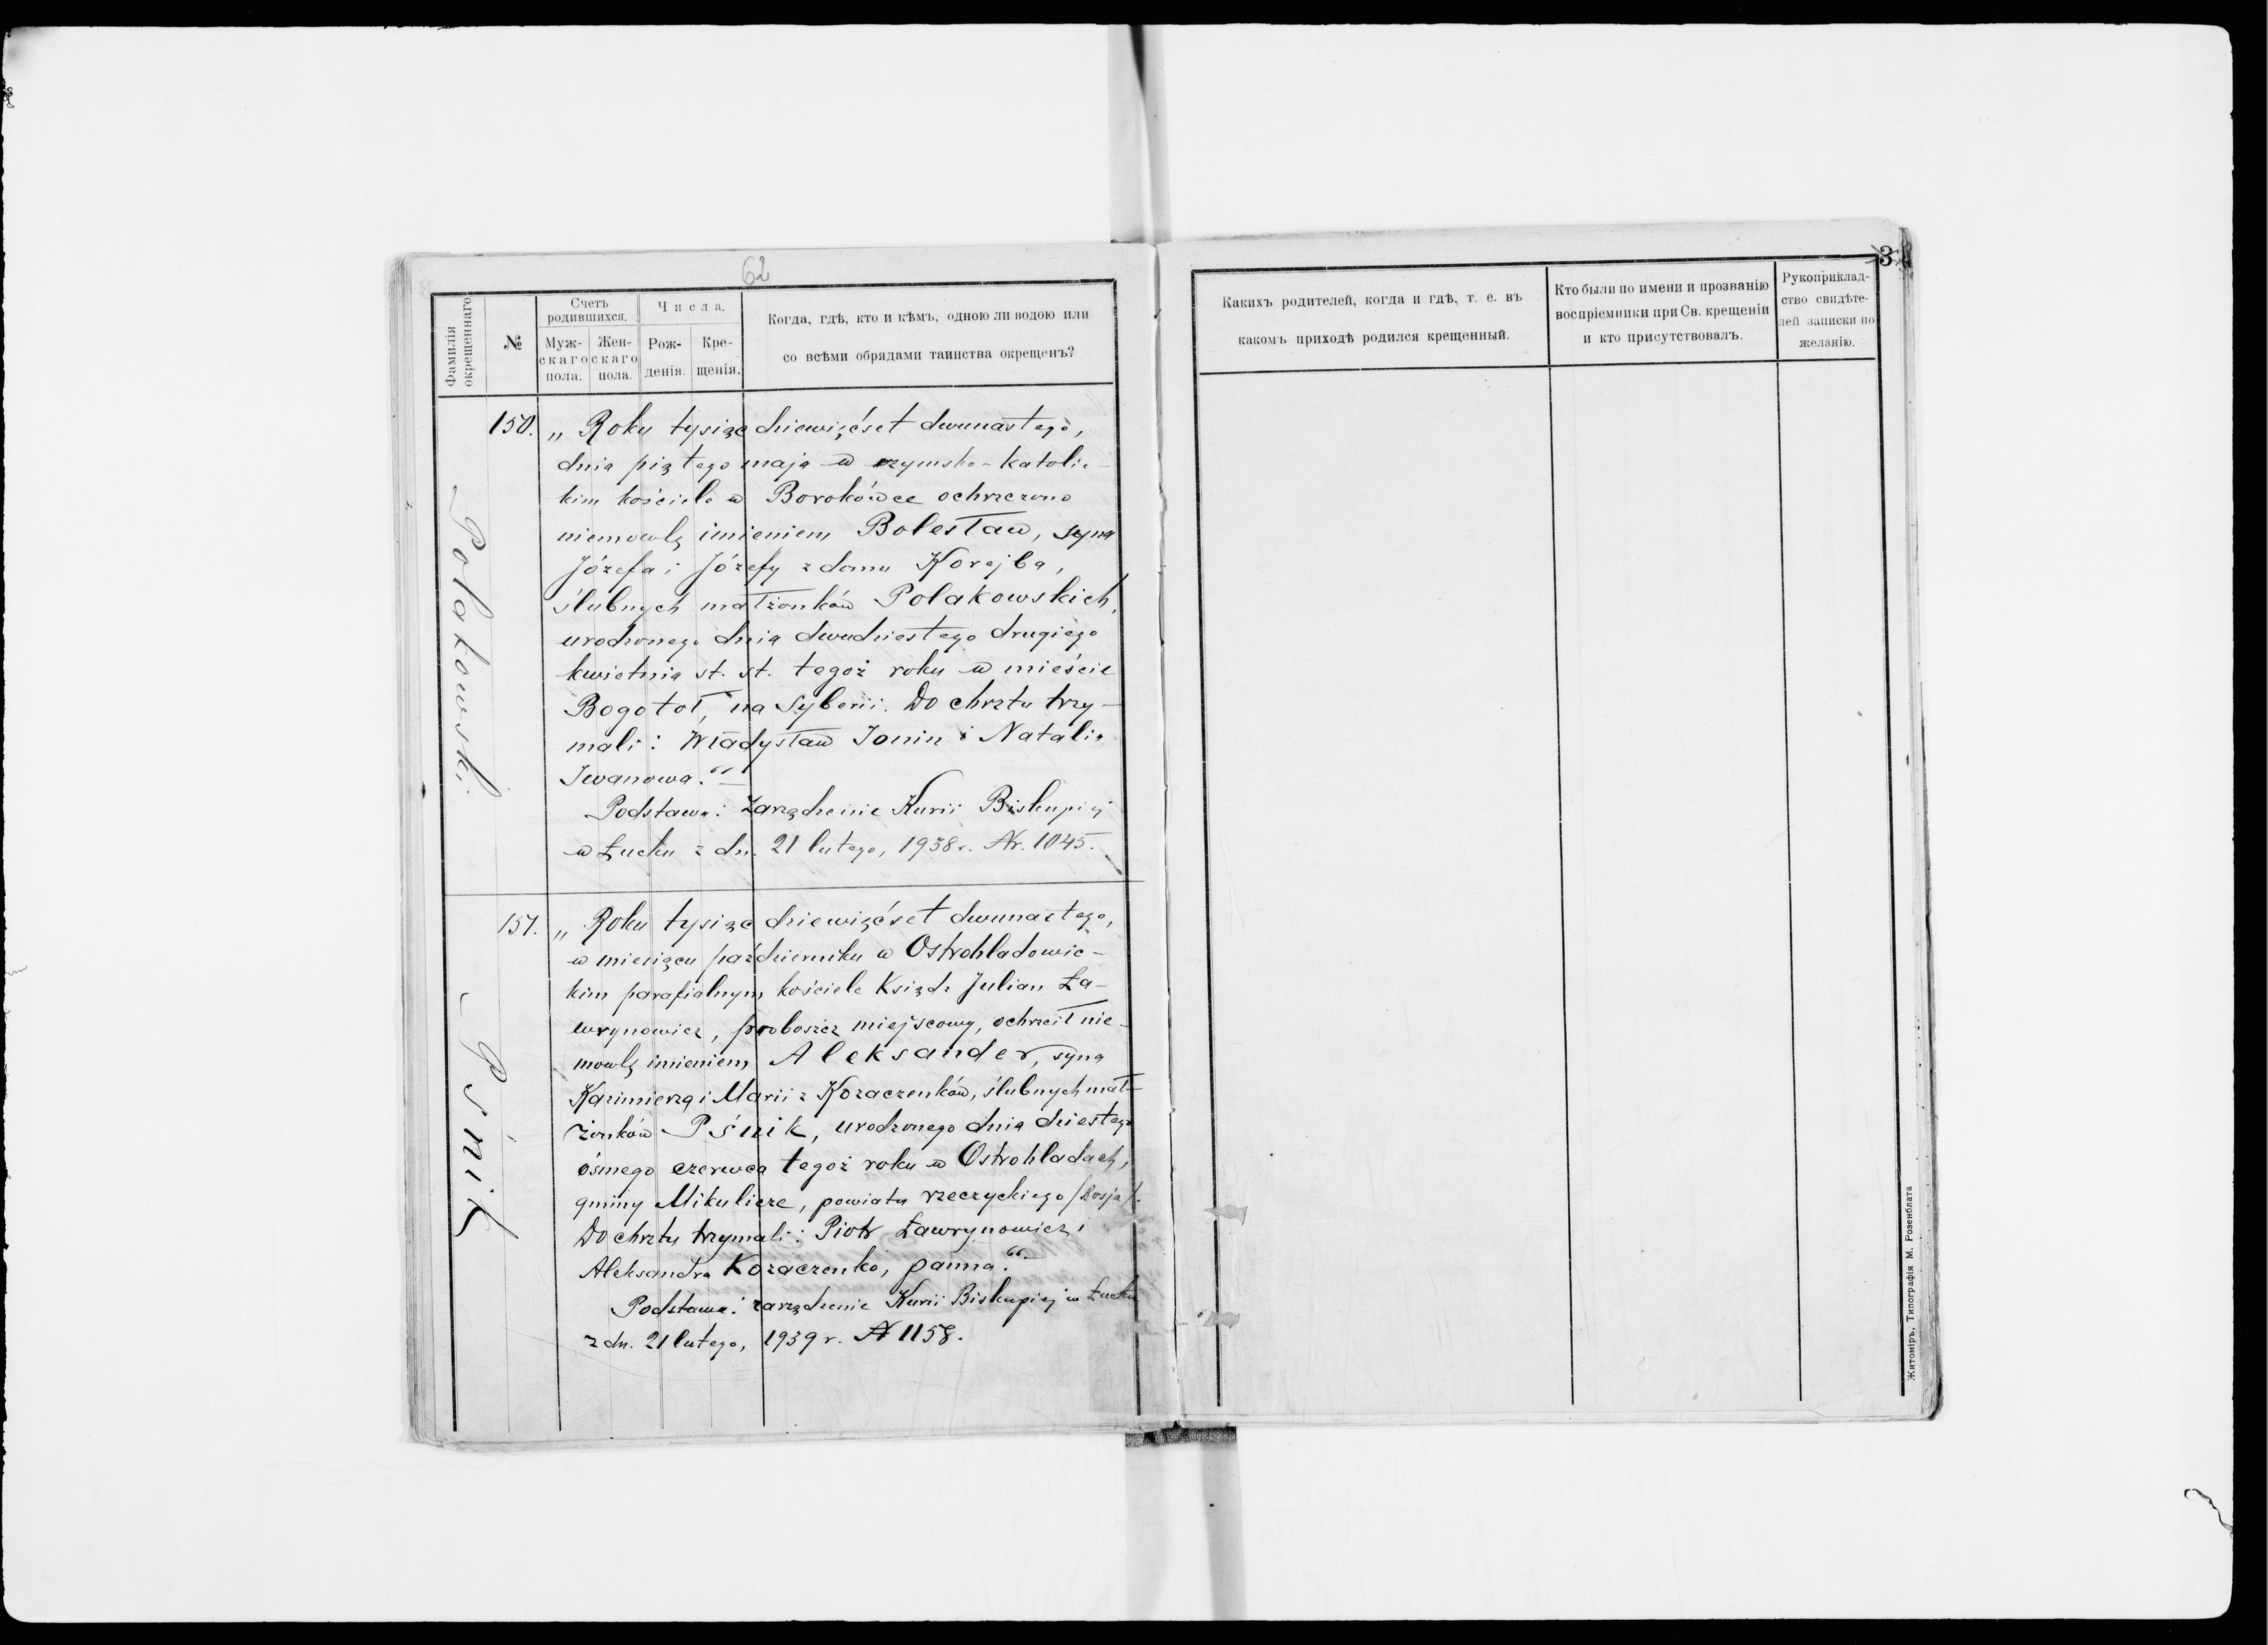 62
Фамилія
окрещеннаго
№
Счетъ
родившихся.
Муж-
скаго
пола.
Жен-
скаго
пола.
Числа.
Рож-
денія.
Кре-
щенія.
Когда, гдѣ, кто и кѣмъ, одною ли водою или
со всѣми обрядами таинства окрещенъ?
Polakowski
150.
„Roku tysiąc dziewięćset dwunastego,
dnia piątego maja w rzymsko-katolic-
kim kościele w Borokówce ochrzczono
niemowlę imieniem Bolesław, syna
Józefa i Józefy z domu Korejba,
ślubnych małżonków Polakowskich,
urodzonego dnia dwudziestego drugiego
kwietnia st. st. tegoż roku w mieście
Bogotoł, na Syberii. Do chrztu trzy-
mali: Władysław Jonin i Natalia
Iwanowa.“—
Podstawa: Zarządzenie Kurii Biskupiej
w Łucku z dn. 21 lutego, 1938 r. Nr. 1045.
Pśnik
151.
„Roku tysiąc dziewięćset dwunastego,
w miesiącu październiku w Ostrohladowic-
kim parafialnym kościele Ksiądz Julian Ła-
wrynowicz, proboszcz miejscowy, ochrzcił nie-
mowlę imieniem Aleksander, syna
Kazimierza i Marii z Kozaczenków, ślubnych mał-
żonków Pśnik, urodzonego dnia dziestego
ósmego czerwca tegoż roku w Ostrohladach,
gminy Mikulicze, powiatu rzeczyckiego /Rosja/.
Do chrztu trzymali: Piotr Ławrynowicz i
Aleksandra Kozaczenko, panna.“—
Podstawa: zarządzenie Kurii Biskupiej w Łucku
z dn. 21 lutego, 1939 r. N 1158.
3
Какихъ родителей, когда и гдѣ, т. е. въ
какомъ приходѣ родился крещенный.
Кто были по имени и прозванію
воспріемники при Св. крещеніи
и кто присутствовалъ.
Рукоприклад-
ство свидѣте-
лей записки по
желанію.
Житоміръ, Типографія М. Розенблата